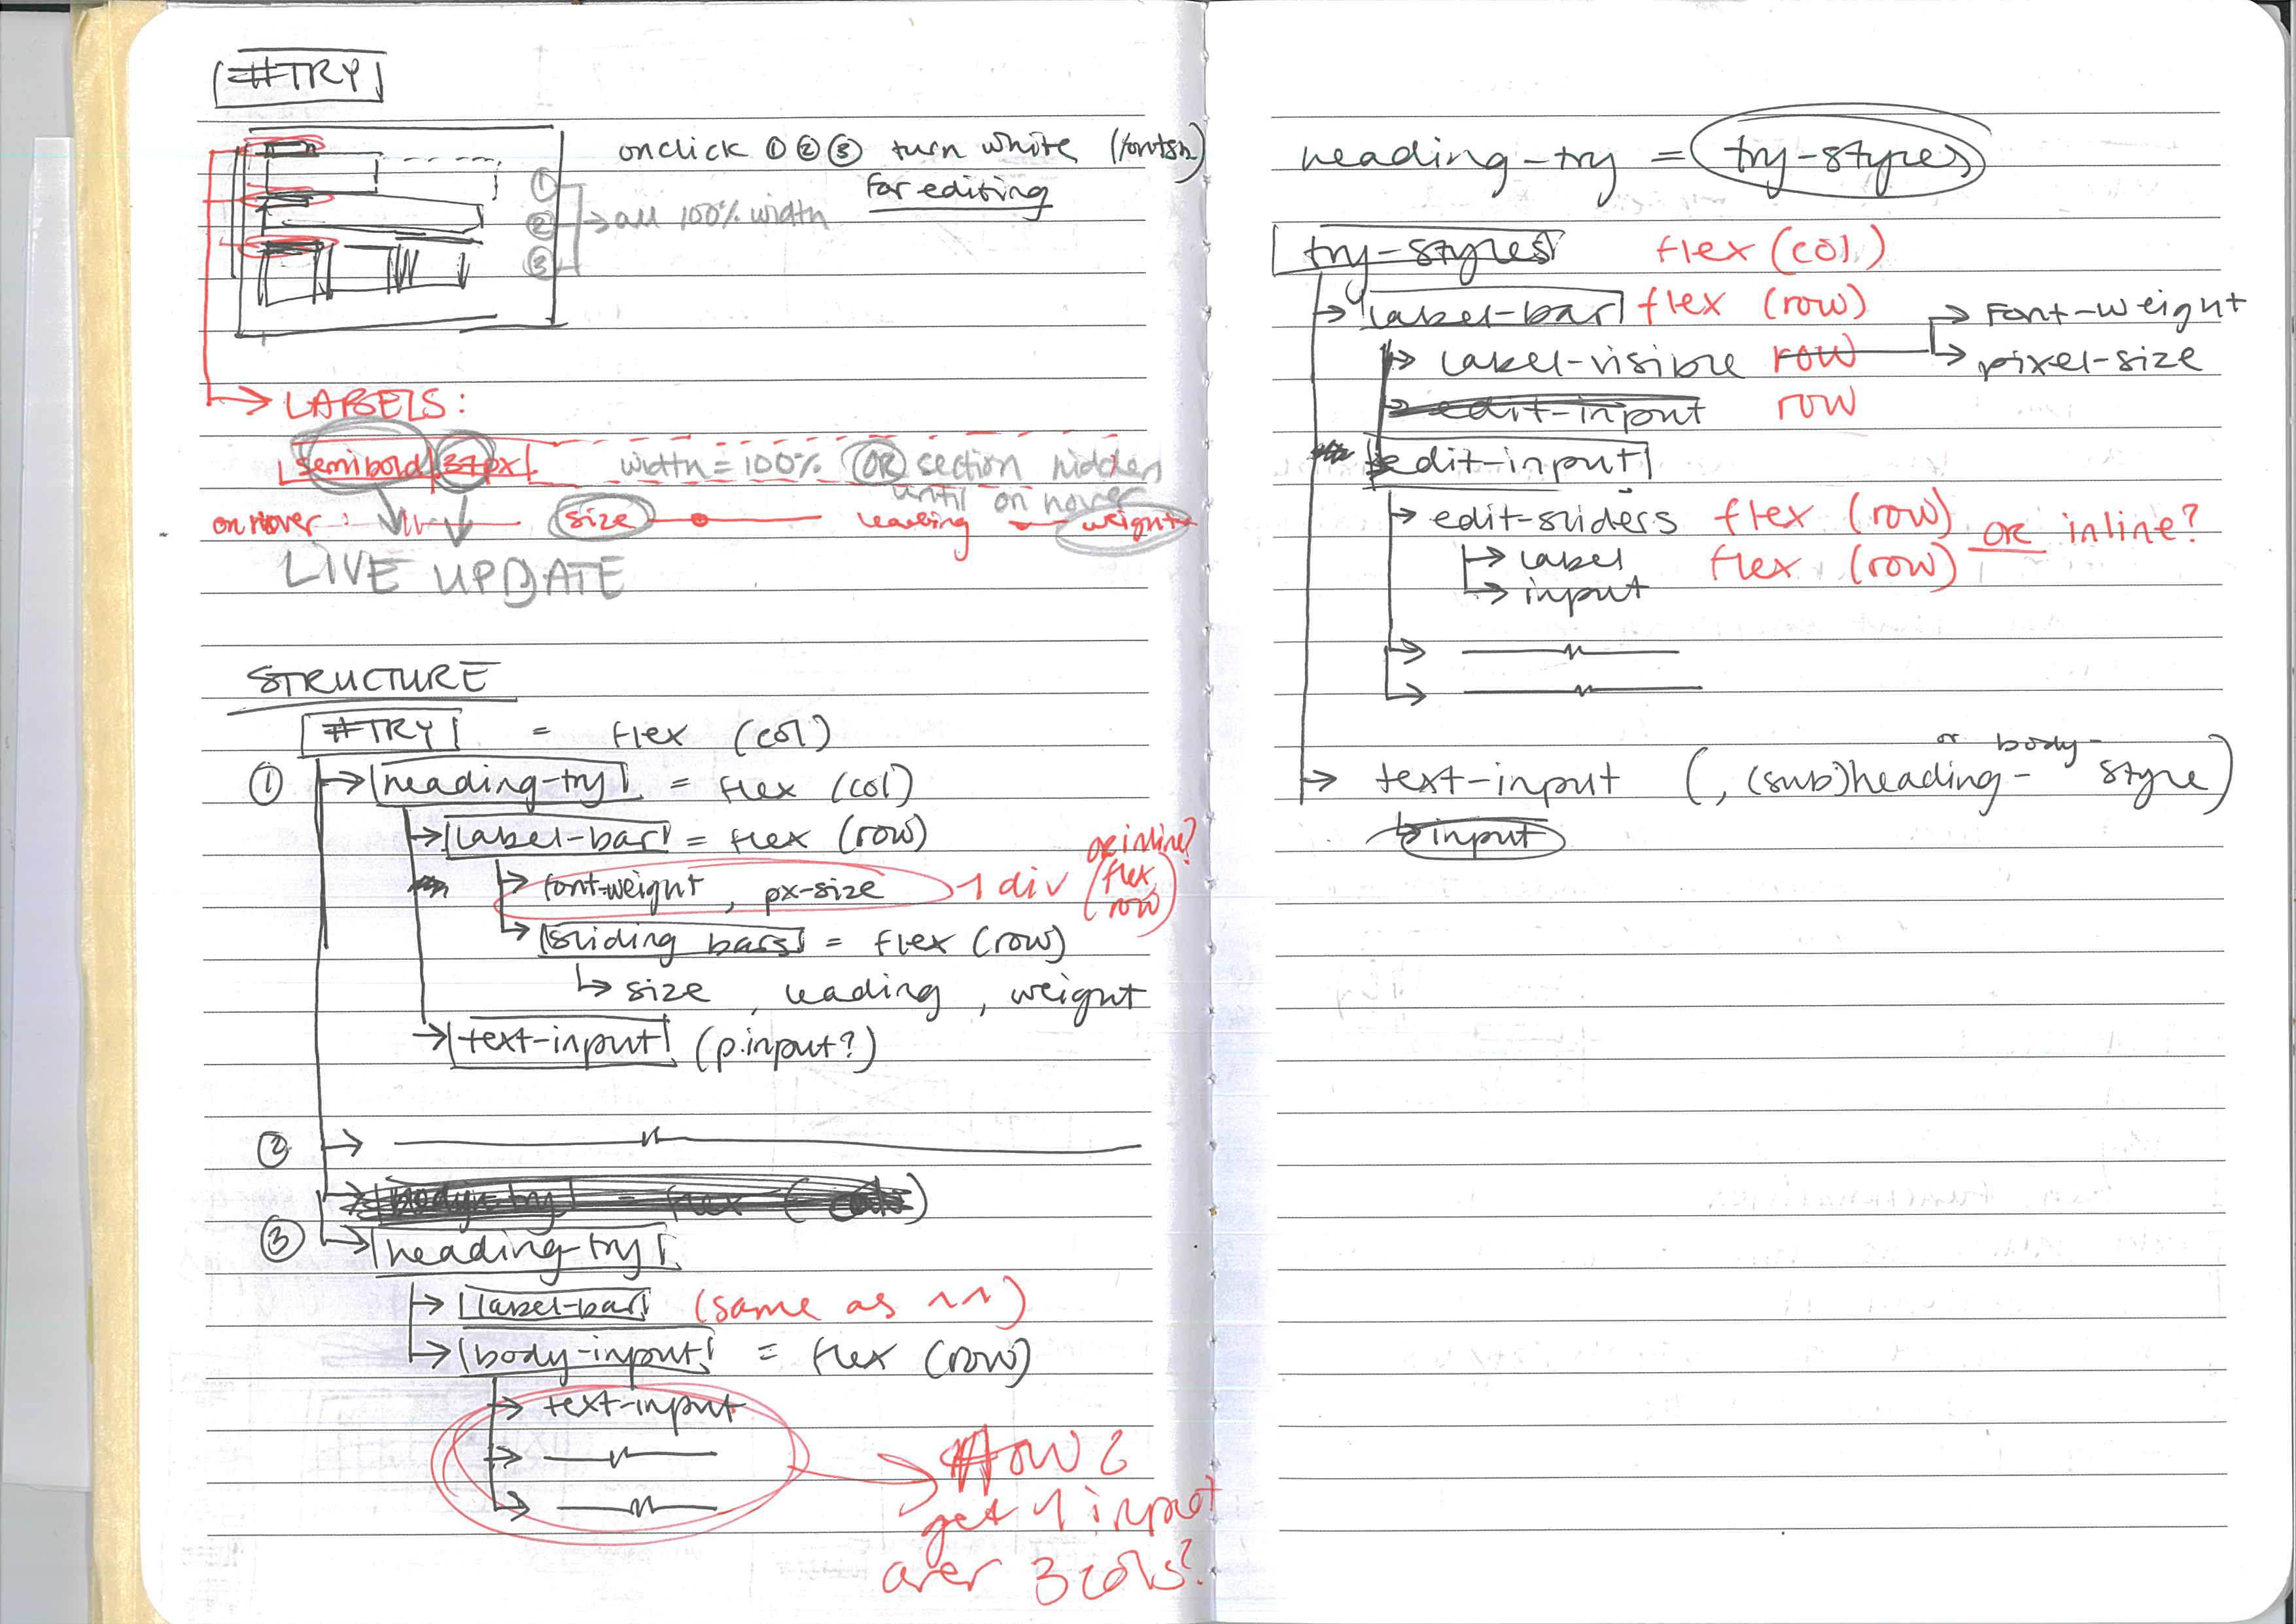 #TRY
onclick ① ② ③ turn white (fontsh)
for editing
①
② → all 100% width
③
→ LABELS:
semibold 37px width = 100% OR section hidden
until on hover
on hover : size leading weight
LIVE UPDATE
STRUCTURE
#TRY = flex (col)
① → heading-try = flex (col)
→ label-bar = flex (row)
→ font-weight, px-size 1 div (flex row) or inline?
→ sliding bars = flex (row)
↳ size, leading, weight
→ text-input (p.input?)
② →
→ body-try = flex (cols)
③ → heading-try
→ label-bar (same as ^^)
→ body-input = flex (row)
→ text-input
→
→
HOW 2
get 1 input
over 3 cols?
heading-try = try-styles
try-styles flex (col)
→ label-bar flex (row)
→ label-visible row → Font-weight
→ pixel-size
→ edit-input row
edit-input
→ edit-sliders flex (row) OR inline?
→ label flex (row)
→ input
→
→
→ text-input (, (sub)heading- or body- style)
↳ input